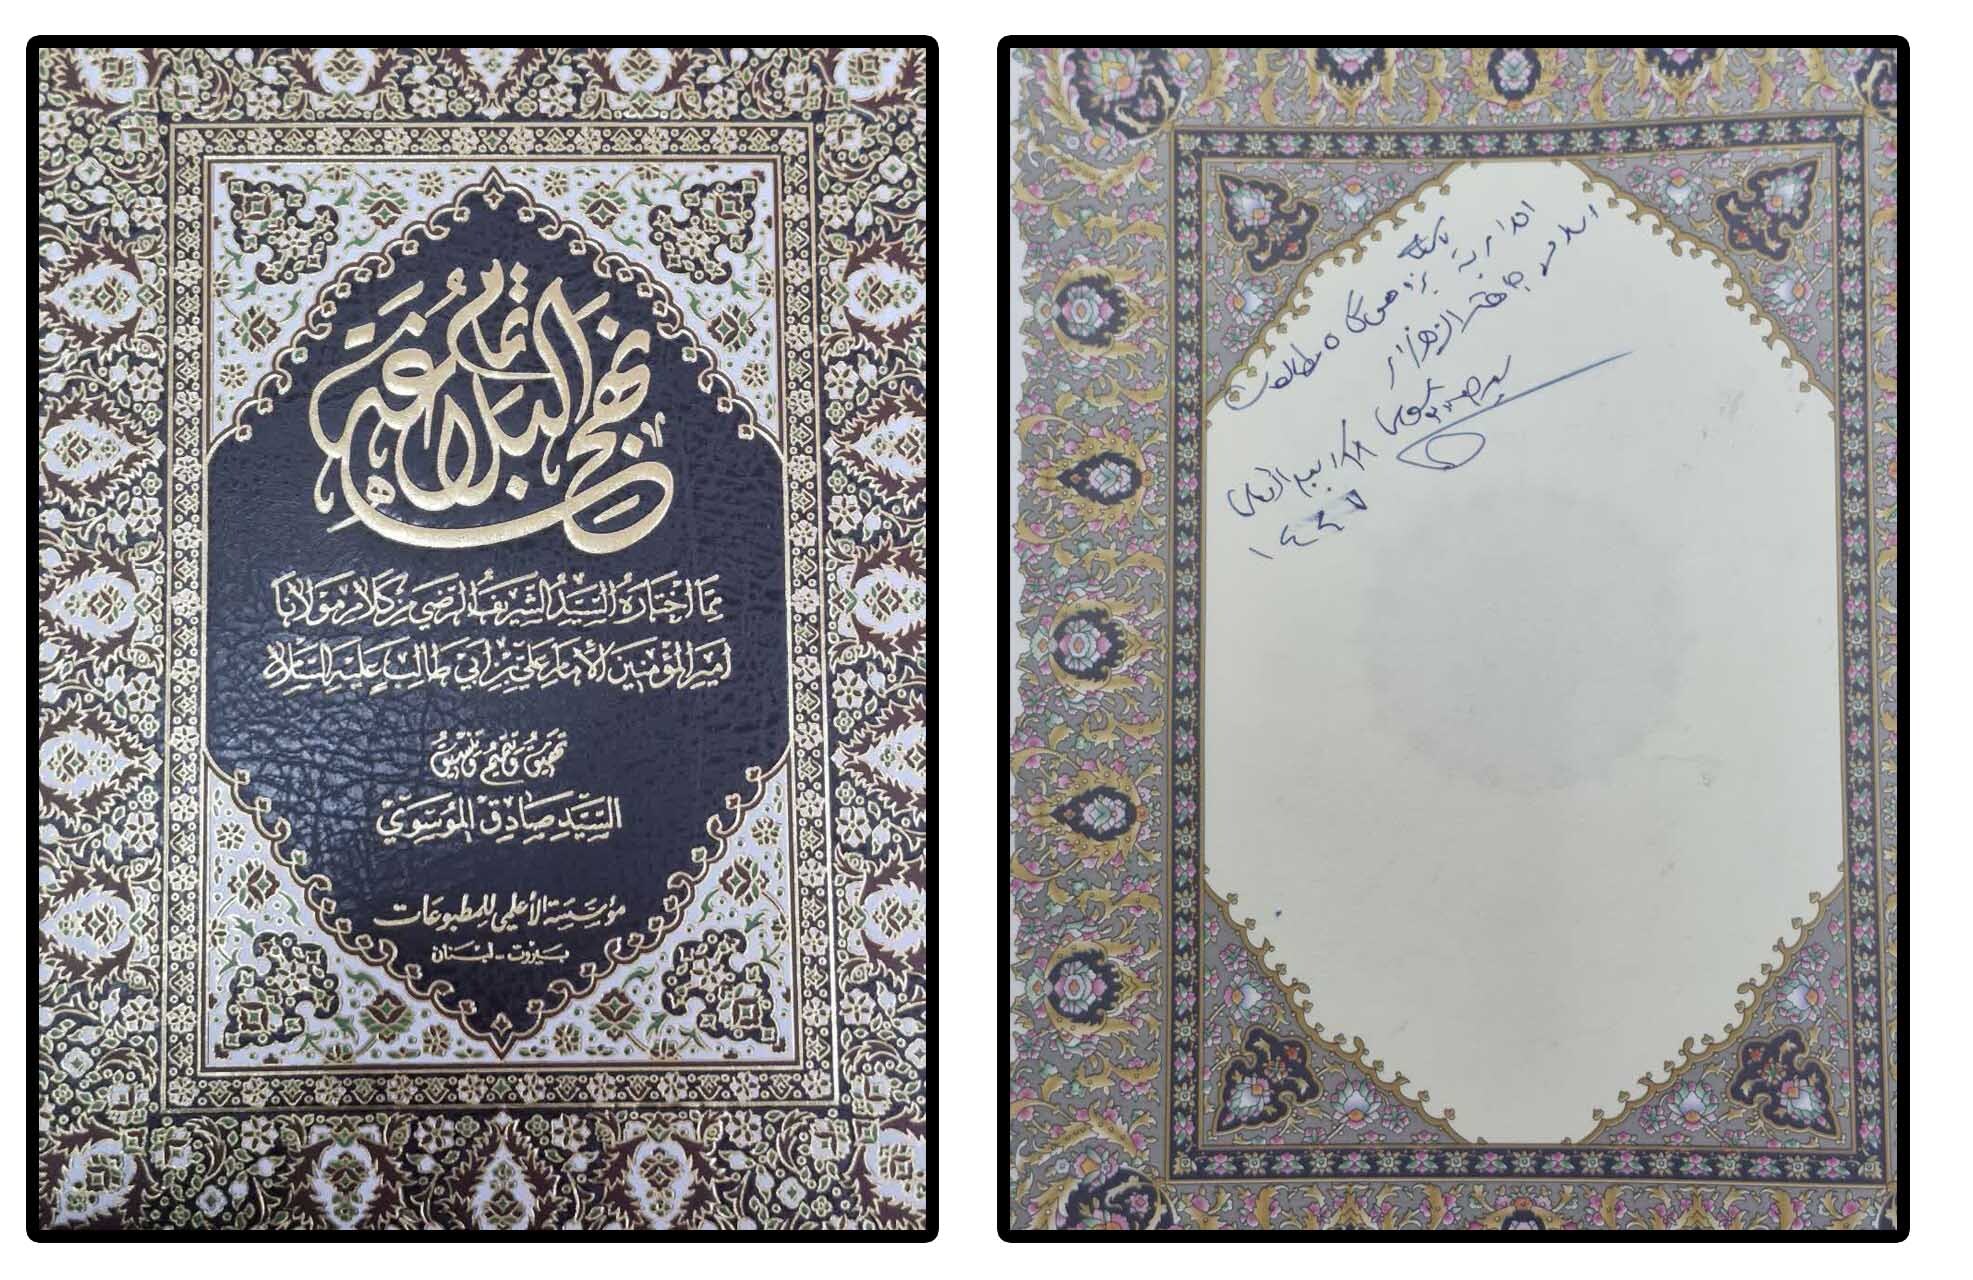 تمام
نهج البلاغة
مِمَّا اخْتَارَهُ السَّيِّدُ الشَّرِيفُ الرَّضِي مِنْ كَلَامِ مَوْلَانَا
أَمِيرِ الْمُؤْمِنِينَ الْإِمَامِ عَلِيِّ بْنِ أَبِي طَالِبٍ عَلَيْهِ السَّلَام
تحقيق وتتميم وتنسيق
السَّيِّد صَادِق الْمُوسَوِي
مؤسسة الأعلمي للمطبوعات
بيروت - لبنان
اهدا به
پژوهشگاه مطالعات
اسلامی جامعة الزهراء
سید
ربیع الثانی